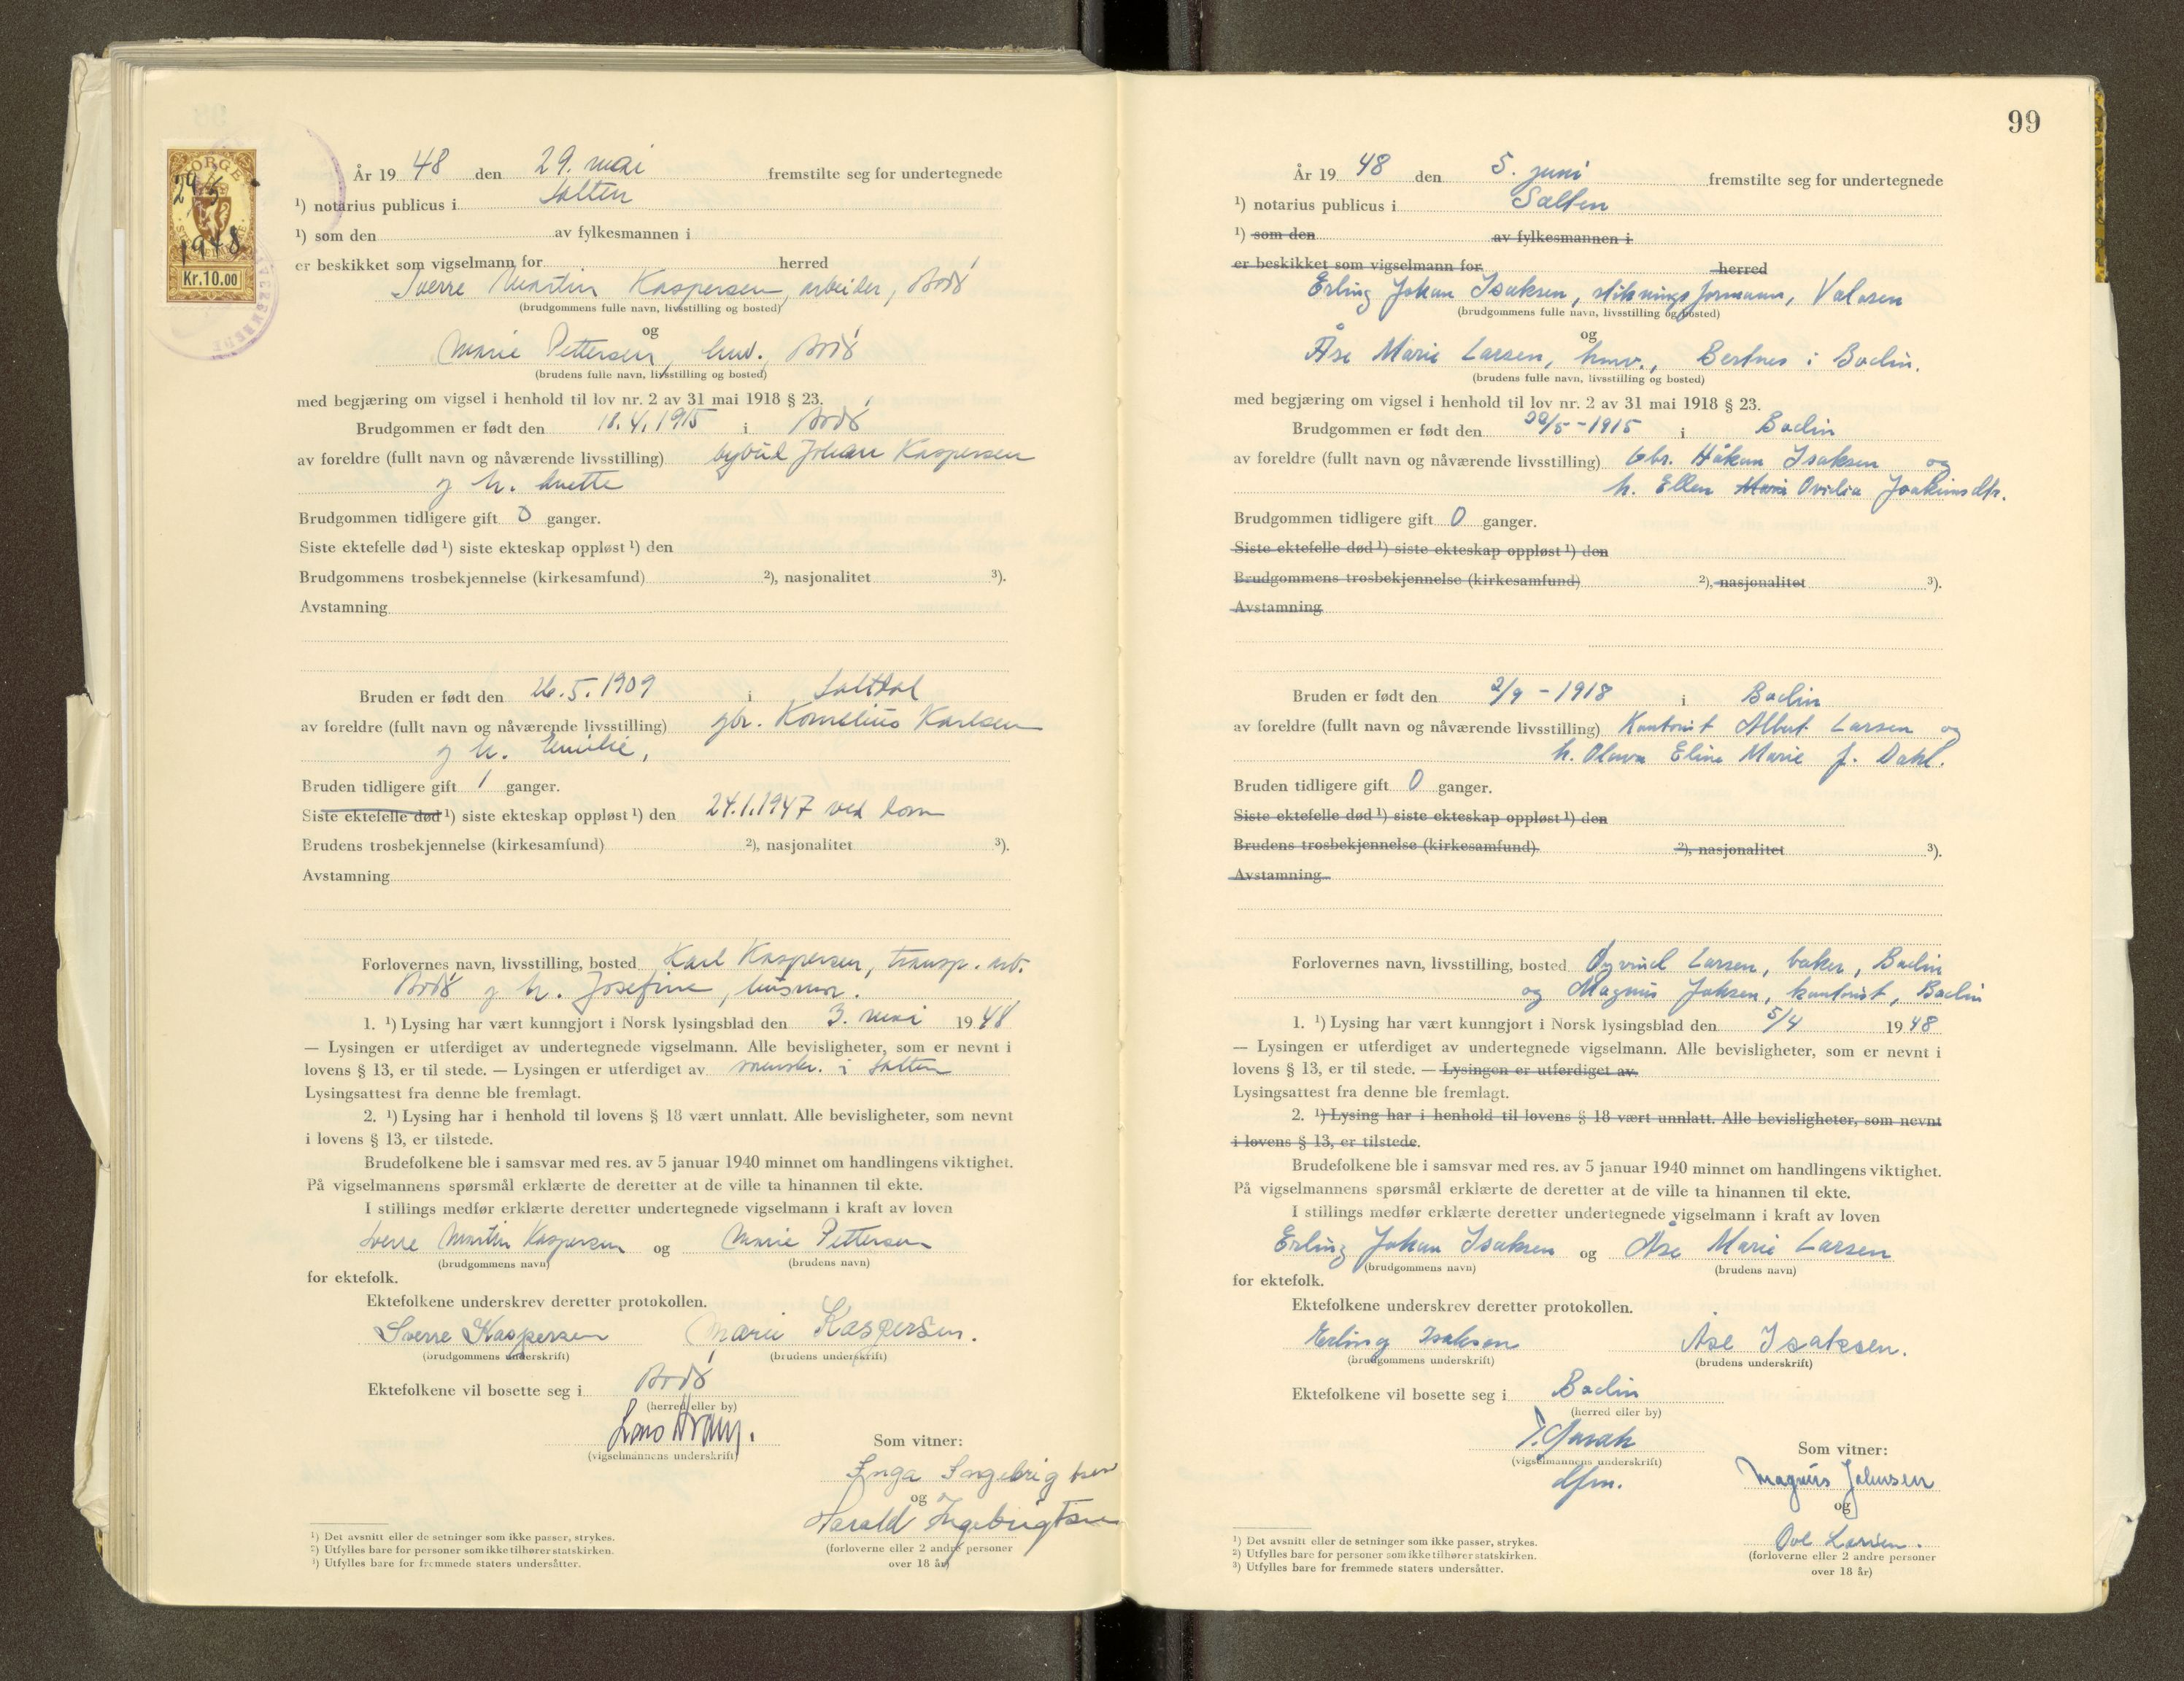 NORGE
29/5
1948
Kr.10.00
År 19 48 den 29. mai fremstilte seg for undertegnede
¹) notarius publicus i Salten
¹) som den av fylkesmannen i
er beskikket som vigselmann for herred
Sverre Martin Kaspersen, arbeider, Bodø
(brudgommens fulle navn, livsstilling og bosted)
og
Marie Pettersen, hmv., Bodø
(brudens fulle navn, livsstilling og bosted)
med begjæring om vigsel i henhold til lov nr. 2 av 31 mai 1918 § 23.
Brudgommen er født den 18.4.1915 i Bodø
av foreldre (fullt navn og nåværende livsstilling) bybud Johan Kaspersen
og h. Anette
Brudgommen tidligere gift 0 ganger.
Siste ektefelle død ¹) siste ekteskap oppløst ¹) den
Brudgommens trosbekjennelse (kirkesamfund) ²), nasjonalitet ³).
Avstamning
Bruden er født den 26.5.1909 i Saltdal
av foreldre (fullt navn og nåværende livsstilling) gbr. Kornelius Karlsen
og h. Emilie,
Bruden tidligere gift 1 ganger.
Siste ektefelle død ¹) siste ekteskap oppløst ¹) den 24.1.1947 ved dom
Brudens trosbekjennelse (kirkesamfund) ²), nasjonalitet ³).
Avstamning
Forlovernes navn, livsstilling, bosted Karl Kaspersen, transp. arb.
Bodø og h. Josefine, husmor.
1. ¹) Lysing har vært kunngjort i Norsk lysingsblad den 3. mai 19 48
— Lysingen er utferdiget av undertegnede vigselmann. Alle bevisligheter, som er nevnt i
lovens § 13, er til stede. — Lysingen er utferdiget av sorenskr. i Salten
Lysingsattest fra denne ble fremlagt.
2. ¹) Lysing har i henhold til lovens § 18 vært unnlatt. Alle bevisligheter, som nevnt
i lovens § 13, er tilstede.
Brudefolkene ble i samsvar med res. av 5 januar 1940 minnet om handlingens viktighet.
På vigselmannens spørsmål erklærte de deretter at de ville ta hinannen til ekte.
I stillings medfør erklærte deretter undertegnede vigselmann i kraft av loven
Sverre Martin Kaspersen og Marie Pettersen
(brudgommens navn) (brudens navn)
for ektefolk.
Ektefolkene underskrev deretter protokollen.
Sverre Kaspersen Marie Kaspersen.
(brudgommens underskrift) (brudens underskrift)
Ektefolkene vil bosette seg i Bodø
(herred eller by)
(vigselmannens underskrift)
Som vitner:
Inga Ingebrigtsen
og
Harald Ingebrigtsen
(forloverne eller 2 andre personer
over 18 år)
¹) Det avsnitt eller de setninger som ikke passer, strykes.
²) Utfylles bare for personer som ikke tilhører statskirken.
³) Utfylles bare for fremmede staters undersåtter.
99
År 19 48 den 5. juni fremstilte seg for undertegnede
¹) notarius publicus i Salten
¹) som den av fylkesmannen i
er beskikket som vigselmann for herred
Erling Johan Isaksen, stikningsformann, Valosen
(brudgommens fulle navn, livsstilling og bosted)
og
Åse Marie Larsen, hmv., Bertnes i Bodin.
(brudens fulle navn, livsstilling og bosted)
med begjæring om vigsel i henhold til lov nr. 2 av 31 mai 1918 § 23.
Brudgommen er født den 20/5-1915 i Bodin
av foreldre (fullt navn og nåværende livsstilling) Gbr. Håkon Isaksen og
h. Ellen Marie Ovidia Joakimsdtr.
Brudgommen tidligere gift 0 ganger.
Siste ektefelle død ¹) siste ekteskap oppløst ¹) den
Brudgommens trosbekjennelse (kirkesamfund) ²), nasjonalitet ³).
Avstamning
Bruden er født den 2/9-1918 i Bodin
av foreldre (fullt navn og nåværende livsstilling) Kontorist Albert Larsen og
h. Olava Eline Marie f. Dahl.
Bruden tidligere gift 0 ganger.
Siste ektefelle død ¹) siste ekteskap oppløst ¹) den
Brudens trosbekjennelse (kirkesamfund) ²), nasjonalitet ³).
Avstamning
Forlovernes navn, livsstilling, bosted Øyvind Larsen, baker, Bodin
og Magnus Johsen, kontorist, Bodin
1. ¹) Lysing har vært kunngjort i Norsk lysingsblad den 5/4 19 48
— Lysingen er utferdiget av undertegnede vigselmann. Alle bevisligheter, som er nevnt i
lovens § 13, er til stede. — Lysingen er utferdiget av
Lysingsattest fra denne ble fremlagt.
2. ¹) Lysing har i henhold til lovens § 18 vært unnlatt. Alle bevisligheter, som nevnt
i lovens § 13, er tilstede.
Brudefolkene ble i samsvar med res. av 5 januar 1940 minnet om handlingens viktighet.
På vigselmannens spørsmål erklærte de deretter at de ville ta hinannen til ekte.
I stillings medfør erklærte deretter undertegnede vigselmann i kraft av loven
Erling Johan Isaksen og Åse Marie Larsen
(brudgommens navn) (brudens navn)
for ektefolk.
Ektefolkene underskrev deretter protokollen.
Erling Isaksen Åse Isaksen.
(brudgommens underskrift) (brudens underskrift)
Ektefolkene vil bosette seg i Bodin
(herred eller by)
(vigselmannens underskrift)
dfm.
Som vitner:
Magnus Johnsen
og
Ove Larsen.
(forloverne eller 2 andre personer
over 18 år)
¹) Det avsnitt eller de setninger som ikke passer, strykes.
²) Utfylles bare for personer som ikke tilhører statskirken.
³) Utfylles bare for fremmede staters undersåtter.